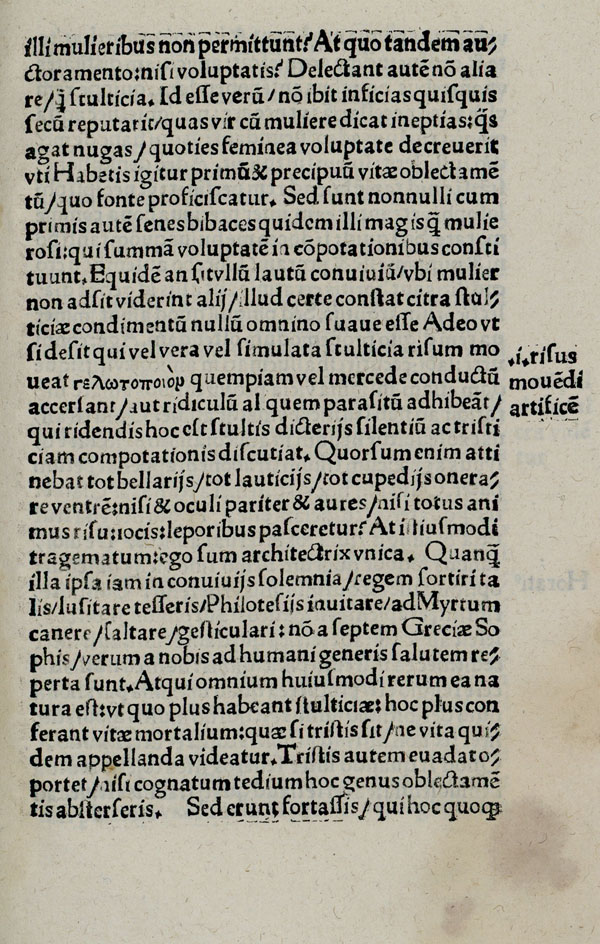 illi mulieribus non permittunt? At quo tandem au⸗
ctoramento: nisi voluptatis? Delectant autē nō alia
re/ q̄ stulticia. Id esse verū/ nō ibit inficias quisquis
secū reputarit/ quas vir cū muliere dicat ineptias: q̄s
agat nugas/ quoties feminea voluptate decreuerit
vti Habetis igitur primū & precipuū vitæ oblectamē
tū/ quo fonte proficiscatur. Sed sunt nonnulli cum
primis autē senes bibaces quidem illi magis q̄ mulie
rosi: qui summā voluptatē in cōpotationibus consti
tuunt. Equidē an sit vllū lautū conuiuiū/ vbi mulier
non adsit viderint alij/ illud certe constat citra stul⸗
ticiæ condimentū nullū omnino suaue esse Adeo vt
si desit qui vel vera vel simulata stulticia risum mo
ueat γελωτοποιὸν quempiam vel mercede conductū
accersant/ aut ridiculū al quem parasitū adhibeāt/
qui ridendis hoc est stultis dicterijs silentiū ac tristi
ciam compotationis discutiat. Quorsum enim atti
nebat tot bellarijs/ tot lauticijs/ tot cupedijs onera⸗
re ventrē: nisi & oculi pariter & aures/ nisi totus ani
mus risu: iocis: leporibus pasceretur? At istiusmodi
tragematum: ego sum architectrix vnica. Quanq̄
illa ipsa iam in conuiuijs solemnia/ regem sortiri ta
lis/ lusitare tesseris/ Philotesijs inuitare/ ad Myrtum
canere/ saltare/ gesticulari: nō a septem Greciæ So
phis/ verum a nobis ad humani generis salutem re⸗
perta sunt. Atqui omnium huiusmodi rerum ea na
tura est: vt quo plus habeant stulticiæ: hoc plus con
ferant vitæ mortalium: quæ si tristis sit/ ne vita qui⸗
dem appellanda videatur. Tristis autem euadat o⸗
portet/ nisi cognatum tedium hoc genus oblectamē
tis absterseris. Sed erunt fortassis/ qui hoc quoqꝫ
.i. risus
mouēdi
artificē